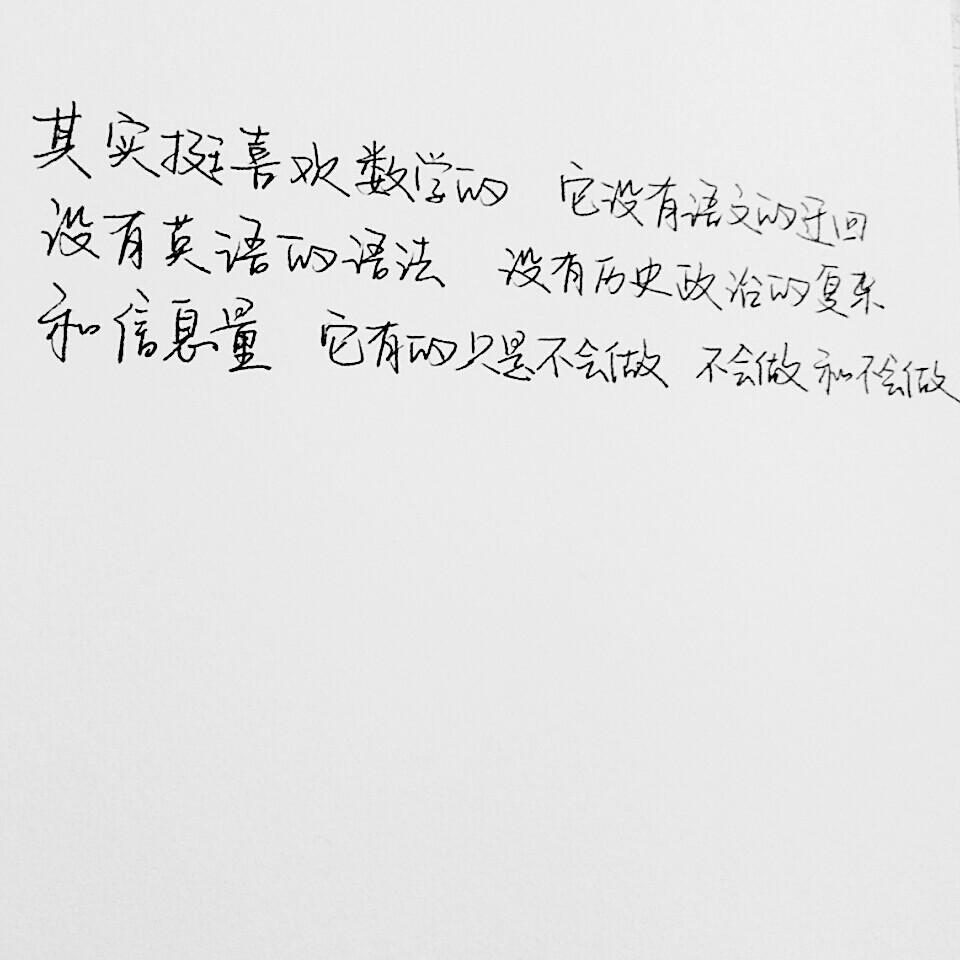 其实挺喜欢数学的 它没有语文的迂回
没有英语的语法 没有历史政治的复杂
和信息量 它有的只是不会做 不会做和不会做